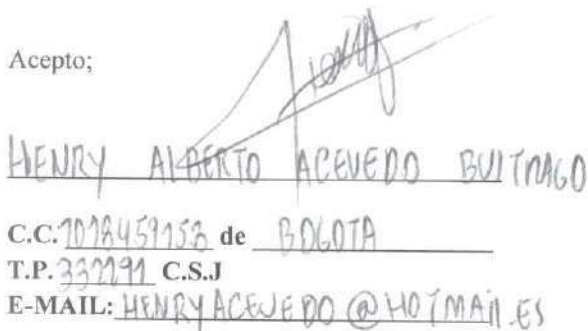 Acepto;
HENRY ALBERTO ACEVEDO BUITRAGO
C.C. 1018459153 de BOGOTA
T.P. 332291 C.S.J
E-MAIL: HENRYACEVEDO@HOTMAIL.ES